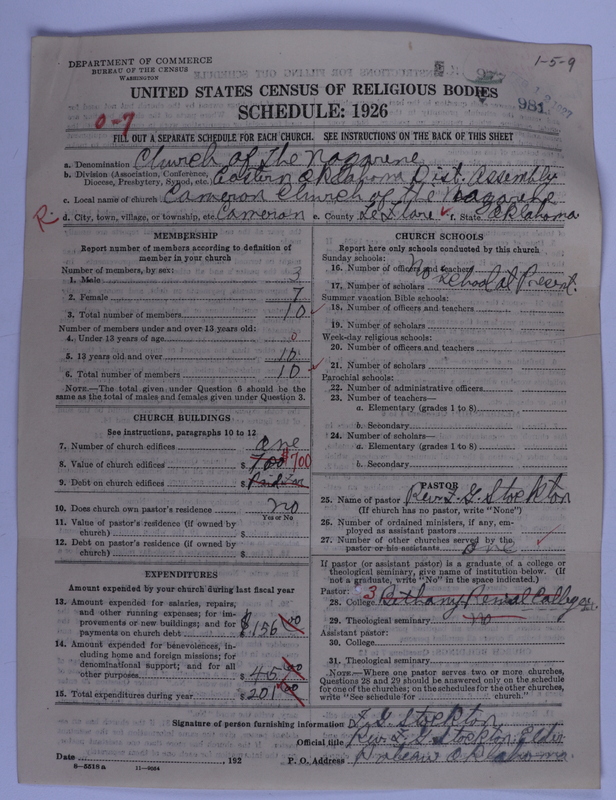 DEPARTMENT OF COMMERCE
BUREAU OF THE CENSUS
WASHINGTON
1-5-9
981
UNITED STATES CENSUS OF RELIGIOUS BODIES
SCHEDULE: 1926
0-7
FILL OUT A SEPARATE SCHEDULE FOR EACH CHURCH. SEE INSTRUCTIONS ON THE BACK OF THIS SHEET
a. Denomination Church of the Nazarene
b. Division (Association, Conference, Diocese, Presbytery, Synod, etc. Eastern Oklahoma Dist. Assembly
c. Local name of church Cameron Church of the Nazarene
R. d. City, town, village, or township, etc. Cameron e. County LeFlore f. State Oklahoma
MEMBERSHIP
Report number of members according to definition of
member in your church
Number of members by sex:
1. Male 3
2. Female 7
3. Total number of members 10
Number of members under and over 13 years old:
4. Under 13 years of age 0
5. 13 years old and over 10
6. Total number of members 10
NOTE.—The total given under Question 6 should be
same as the total of males and females given under Question 3.
CHURCH BUILDINGS
See instructions, paragraphs 10 to 12
7. Number of church edifices one
8. Value of church edifices $ 700 $700
9. Debt on church edifices $
10. Does church own pastor's residence? no
Yes or No
11. Value of pastor's residence (if owned by
church) $
12. Debt on pastor's residence (if owned by
church) $
EXPENDITURES
Amount expended by your church during last fiscal year
13. Amount expended for salaries, repairs,
and other running expenses; for im-
provements or new buildings; and for
payments on church debt $ 156 00
14. Amount expended for benevolences, in-
cluding home and foreign missions; for
denominational support; and for all
other purposes $ 45 00
15. Total expenditures during year $ 201 00
CHURCH SCHOOLS
Report here only schools conducted by this church
Sunday schools:
16. Number of officers and teachers No
17. Number of scholars School at Present.
Summer vacation Bible schools:
18. Number of officers and teachers
19. Number of scholars
Week-day religious schools:
20. Number of officers and teachers
21. Number of scholars
Parochial schools:
22. Number of administrative officers
23. Number of teachers—
a. Elementary (grades 1 to 8)
b. Secondary
24. Number of scholars—
a. Elementary (grades 1 to 8)
b. Secondary
PASTOR
25. Name of pastor Rev. L. G. Stockton
(If church has no pastor, write "None")
26. Number of ordained ministers, if any, em-
ployed as assistant pastors
27. Number of other churches served by the
pastor or his assistants one
If pastor (or assistant pastor) is a graduate of a college or
theological seminary, give name of institution below. (If
not a graduate, write "No" in the space indicated.)
Pastor: 3
28. College Bethany Peniel College
29. Theological seminary no
Assistant pastor:
30. College
31. Theological seminary
NOTE.—Where one pastor serves two or more churches,
Questions 28 and 29 should be answered only on the schedule
for one of the churches; on the schedules for the other churches,
write "See schedule for church."
Signature of person furnishing information L. G. Stockton
Official title Rev. L. G. Stockton, Elder
Date , 192 P. O. Address Oklahoma.
8-5518a 11-9054